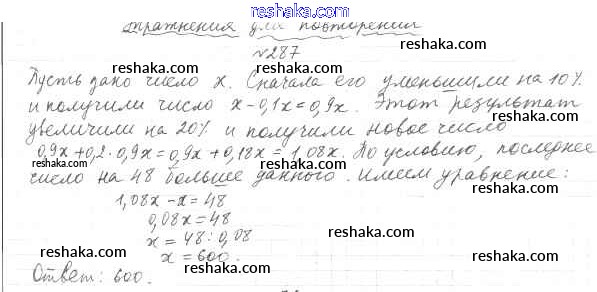 reshaka.com
Упражнения для повторения
reshaka.com
№287
Пусть дано число x. Сначала его уменьшили на 10%
и получили число x-0,1x=0,9x. Этот результат
увеличили на 20% и получили новое число
0,9x+0,2·0,9x=0,9x+0,18x=1,08x. По условию, последнее
число на 48 больше данного. Имеем уравнение:
1,08x-x=48
0,08x=48
x=48:0,08
x=600.
Ответ: 600.
reshaka.com
reshaka.com
reshaka.com
reshaka.com
reshaka.com
reshaka.com
reshaka.com
reshaka.com
reshaka.com
reshaka.com
reshaka.com